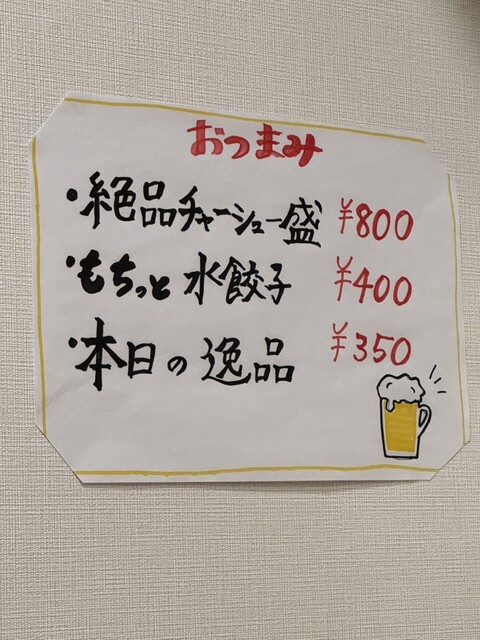 おつまみ
・絶品チャーシュー盛 ¥800
・もちっと水餃子 ¥400
・本日の逸品 ¥350